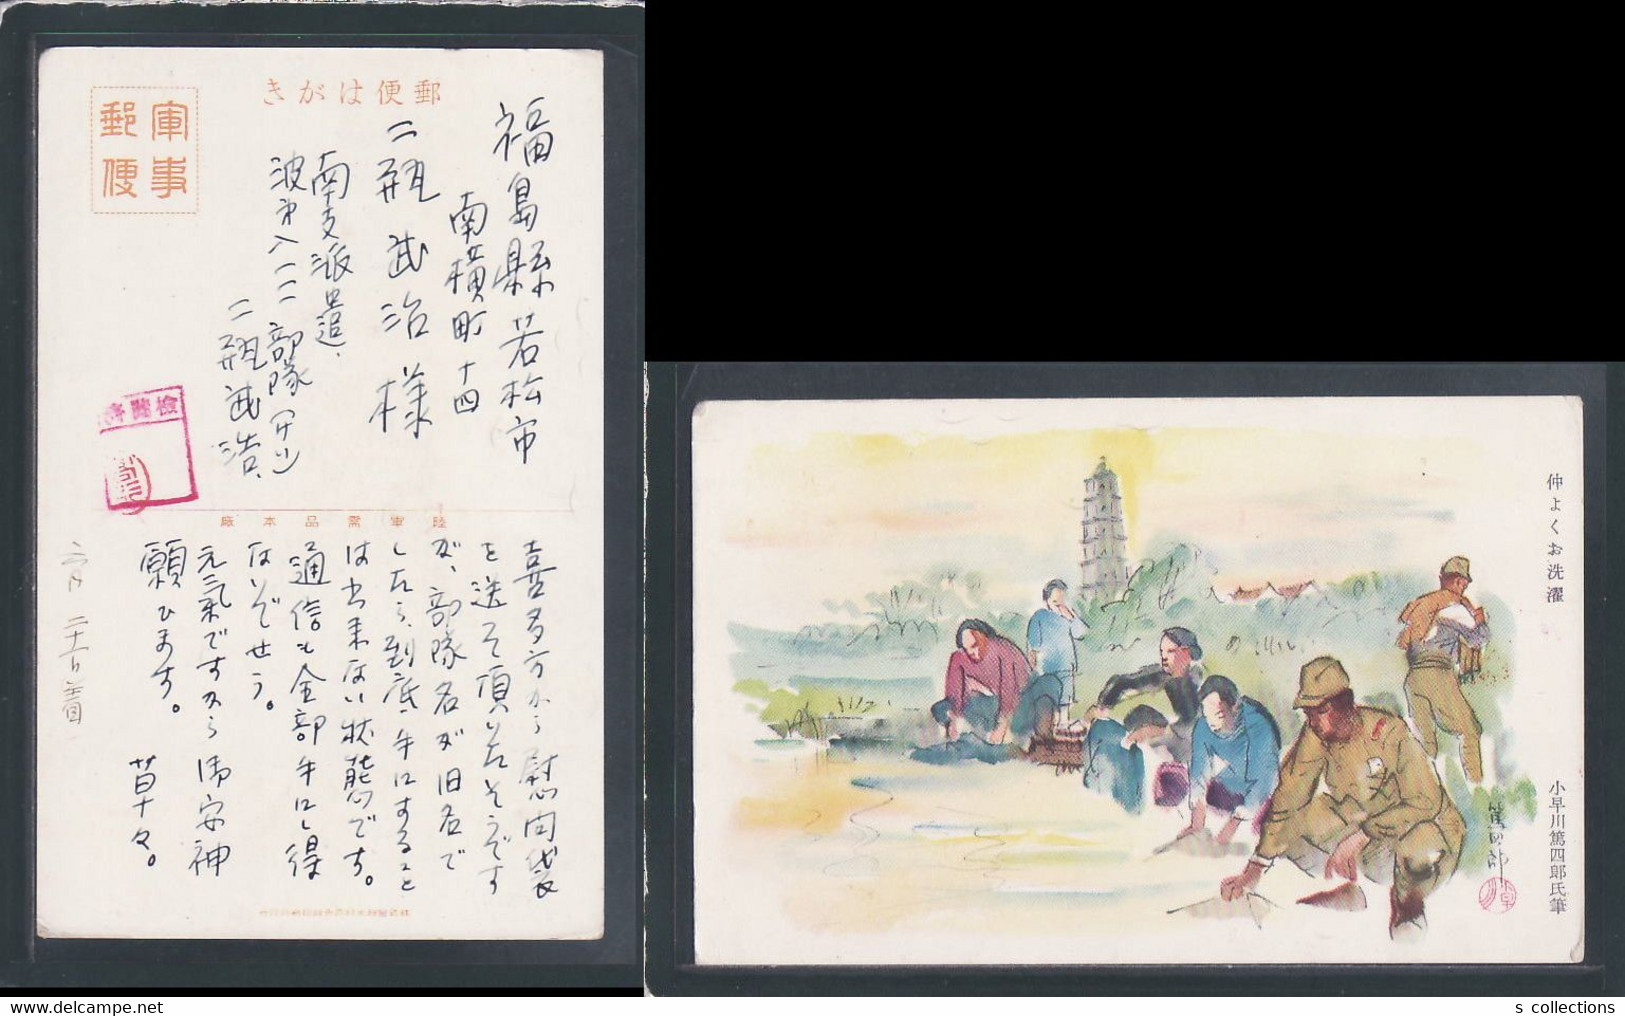 郵便はがき
軍事
郵便
福島縣若松市
南横町十四
二瓶武治様
南支派遣、
波第八一一一部隊
二瓶武浩、
檢閲濟
陸軍需品本廠
喜多方から慰問袋
を送って頂いたそうです
が、部隊名が旧名で
したら、到底手にすること
は出来ない状態です。
通信も全部手にし得
ないでせう。
元気ですから御安神
願ひます。
草々。
仲よくお洗濯
小早川篤四郎氏筆
篤四郎
s collections